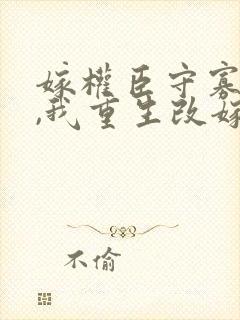 嫁權臣守寡
,我重生改嫁
不偷